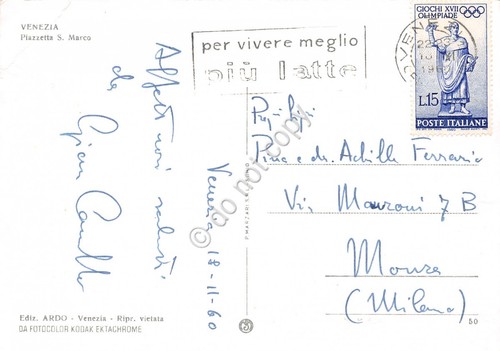 VENEZIA
Piazzetta S. Marco
per vivere meglio
più latte
VENEZIA
GIOCHI XVII
OLIMPIADE
L.15
POSTE ITALIANE
Affettuosi saluti
da
Gian Camillo
Venezia 18-11-60
Pina e dr. Achille Ferrario
Via Manzoni 7 B
Monza
(Milano)
do not copy
Ediz. ARDO - Venezia - Ripr. vietata
DA FOTOCOLOR KODAK EKTACHROME
50